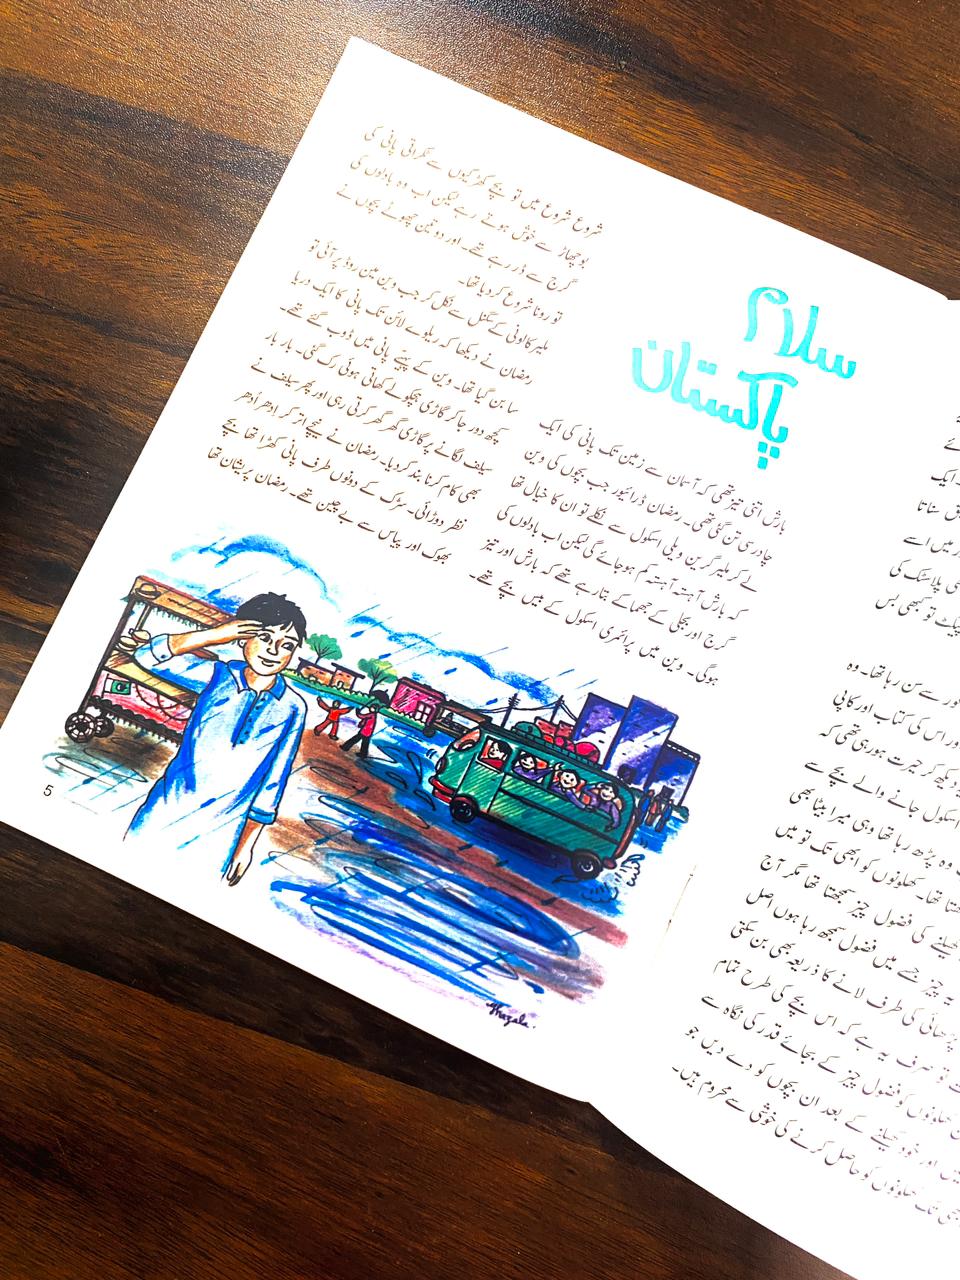 سلام
پاکستان
بارش اتنی تیز تھی کہ آسمان سے زمین تک پانی کی ایک
چادر سی تن گئی تھی۔ رمضان ڈرائیور جب بچوں کی وین
لے کر ملیر گرین ویلی اسکول سے نکلے تو ان کا خیال تھا
کہ بارش آہستہ آہستہ کم ہوجائے گی لیکن اب بادلوں کی
گرج اور بجلی کے جھماکے بتارہے تھے کہ بارش اور تیز
ہوگی۔ وین میں پرائمری اسکول کے بیس بچے تھے۔
شروع شروع میں تو بچے کھڑکیوں سے ٹکراتی پانی کی
بوچھاڑ سے خوش ہوتے رہے لیکن اب وہ بادلوں کی
گرج سے ڈر رہے تھے۔ اور دو تین چھوٹے بچوں نے
تو رونا شروع کردیا تھا۔
ملیر کالونی کے سگنل سے نکل کر جب وین مین روڈ پر آئی تو
رمضان نے دیکھا کہ ریلوے لائن تک پانی کا ایک دریا
سا بن گیا تھا۔ وین کے پہیے پانی میں ڈوب گئے تھے۔
کچھ دور جاکر گاڑی ہچکولے کھاتی ہوئی رک گئی۔ بار بار
سیلف لگانے پر گاڑی گھر گھر کرتی رہی اور پھر سیلف نے
بھی کام کرنا بند کردیا۔ رمضان نے نیچے اتر کر ادھر اُدھر
نظر دوڑائی۔ سڑک کے دونوں طرف پانی کھڑا تھا بچے
بھوک اور پیاس سے بے چین تھے۔ رمضان پریشان تھا
Ghazala.
5
ایک
سناتا
میں اسے
پلاسٹک کی
پیکٹ تو کبھی بس
سے سن رہا تھا۔ وہ
اور اس کی کتاب اور کاپی
دیکھ کر حیرت ہورہی تھی کہ
اسکول جانے والے بچے سے
وہ پڑھ رہا تھا وہی میرا بیٹا بھی
تھا۔ کھلونوں کو ابھی تک تو میں
کھیلنے کی فضول چیز سمجھتا تھا مگر آج
یہ چیز جسے میں فضول سمجھ رہا ہوں اصل
پڑھائی کی طرف لانے کا ذریعہ بھی بن سکتی
تو صرف یہ ہے کہ اس بچے کی طرح تمام
کھلونوں کو فضول چیز کے بجائے قدر کی نگاہ سے
اور خود کھیلنے کے بعد ان بچوں کو دے دیں جو
تک کھلونوں کو حاصل کرنے کی خوشی سے محروم ہیں۔